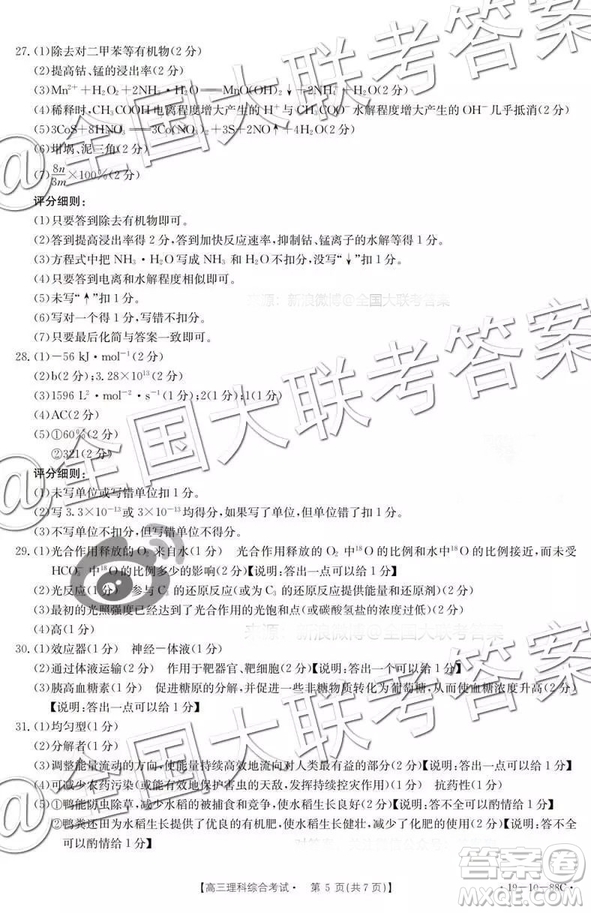 27.(1)除去对二甲苯等有机物(2分)
(2)提高钴、锰的浸出率(2分)
(3)Mn²⁺+H₂O₂+2NH₃·H₂O══MnO(OH)₂↓+2NH
(4)稀释时,CH₃COOH电离程度增大产生的H⁺与CH₃COO⁻水解程度增大产生的OH⁻几乎抵消(2分)
(5)3CoS+8HNO₃══3Co(NO₃)₂+3S+2NO↑+4H₂O(2分)
(6)坩埚、泥三角(2分)
(7)8n/3m×100%(2分)
评分细则:
(1)只要答到除去有机物即可。
(2)答到提高浸出率得2分,答到加快反应速率、抑制钴、锰离子的水解等得1分。
(3)方程式中把NH₃·H₂O写成NH₃和H₂O也可。
(4)只要答到电离和水解程度相似即可。
(5)未写“↑”扣1分。
(6)写错一个扣1分。
(7)只要最后化简与答案一致即可。
28.(1)-56 kJ·mol⁻¹(2分)
(2)b(2分);3.28×10¹³(2分)
(3)1596 L²·mol⁻²·s⁻¹(1分);2(1分);1(1分)
(4)AC(2分)
(5)①60%(2分)
②321(2分)
评分细则:
(1)未写单位或写错单位扣1分。
(2)写3.3×10⁻¹³或10⁻¹³均得分。
(3)不写单位不扣分,但写错单位扣1分。
29.(1)光合作用释放的O₂来自水(1分) 光合作用释放的O₂中¹⁸O的比例和水中¹⁸O的比例接近,而未受
HCO₃⁻中¹⁸O的比例多少的影响(2分)【说明:答出一点可以得1分】
(2)光反应(1分) 参与C₃的还原(或为C₃的还原提供能量和还原剂)(2分)
(3)最初的光照强度已经达到了光合作用的光饱和点(或碳酸氢盐的浓度有限)(2分)
(4)高(1分)
30.(1)效应器(1分) 神经—体液(1分)
(2)通过体液运输(2分) 作用于靶器官、靶细胞(2分)【说明:答出一点可以得1分】
(3)胰高血糖素(1分)
31.(1)均匀型(1分)
(2)分解者(1分)
(3)调整能量流动的方向,使能量持续高效地流向对人类最有益的部分(2分)【说明:答出一点可以得1分】
(4)可减少农药污染(或能有效地保护害虫的天敌,发挥持续控灾作用)(1分) 抗药性(1分)
(5)①鸭能防虫除草,减少了水稻的被捕食和竞争,使水稻生长良好(2分)【说明:答出一点可以得1分】
②鸭粪还田为水稻提供了优质的有机肥,使水稻生长健壮,减少了化肥的使用(2分)【说明:答出一点可以得1分】
【高三理科综合考试· 第5页(共7页)】
·19-10-88C·
@全国大联考答案
来源:新浪微博@全国大联考答案